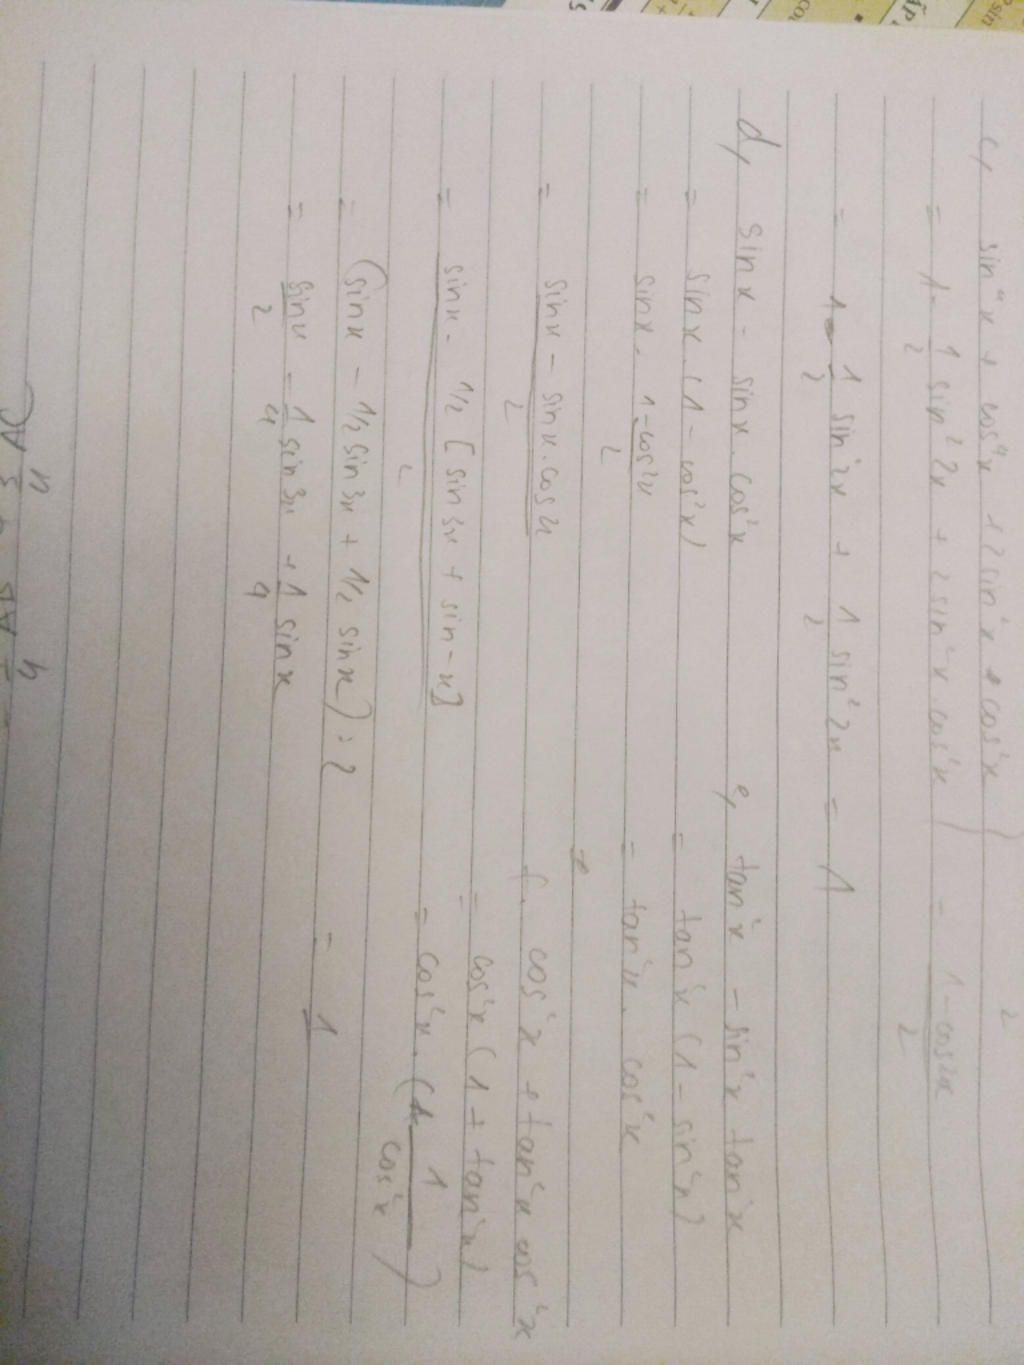 c, sin⁴x + cos⁴x + 2sin²x . cos²x
= 1 - 1/2 sin²2x + 2sin²x cos²x
= 1 - 1/2 sin²2x + 1/2 sin²2x = 1
2
= 1-cos2x / 2
d, sinx - sinx.cos²x
= sinx.(1 - cos²x)
= sinx. 1-cos2x / 2
= sinx - sinx.cos2x / 2
= sinx - 1/2[sin3x + sin-x] / 2
= (sinx - 1/2sin3x + 1/2 sinx):2
= sinx/2 - 1/4 sin3x + 1/4 sinx
e, tan²x - sin²x tan²x
= tan²x(1 - sin²x)
= tan²x. cos²x
f. cos²x + tan²x cos²x
= cos²x(1 + tan²x)
= cos²x.(1/cos²x)
= 1